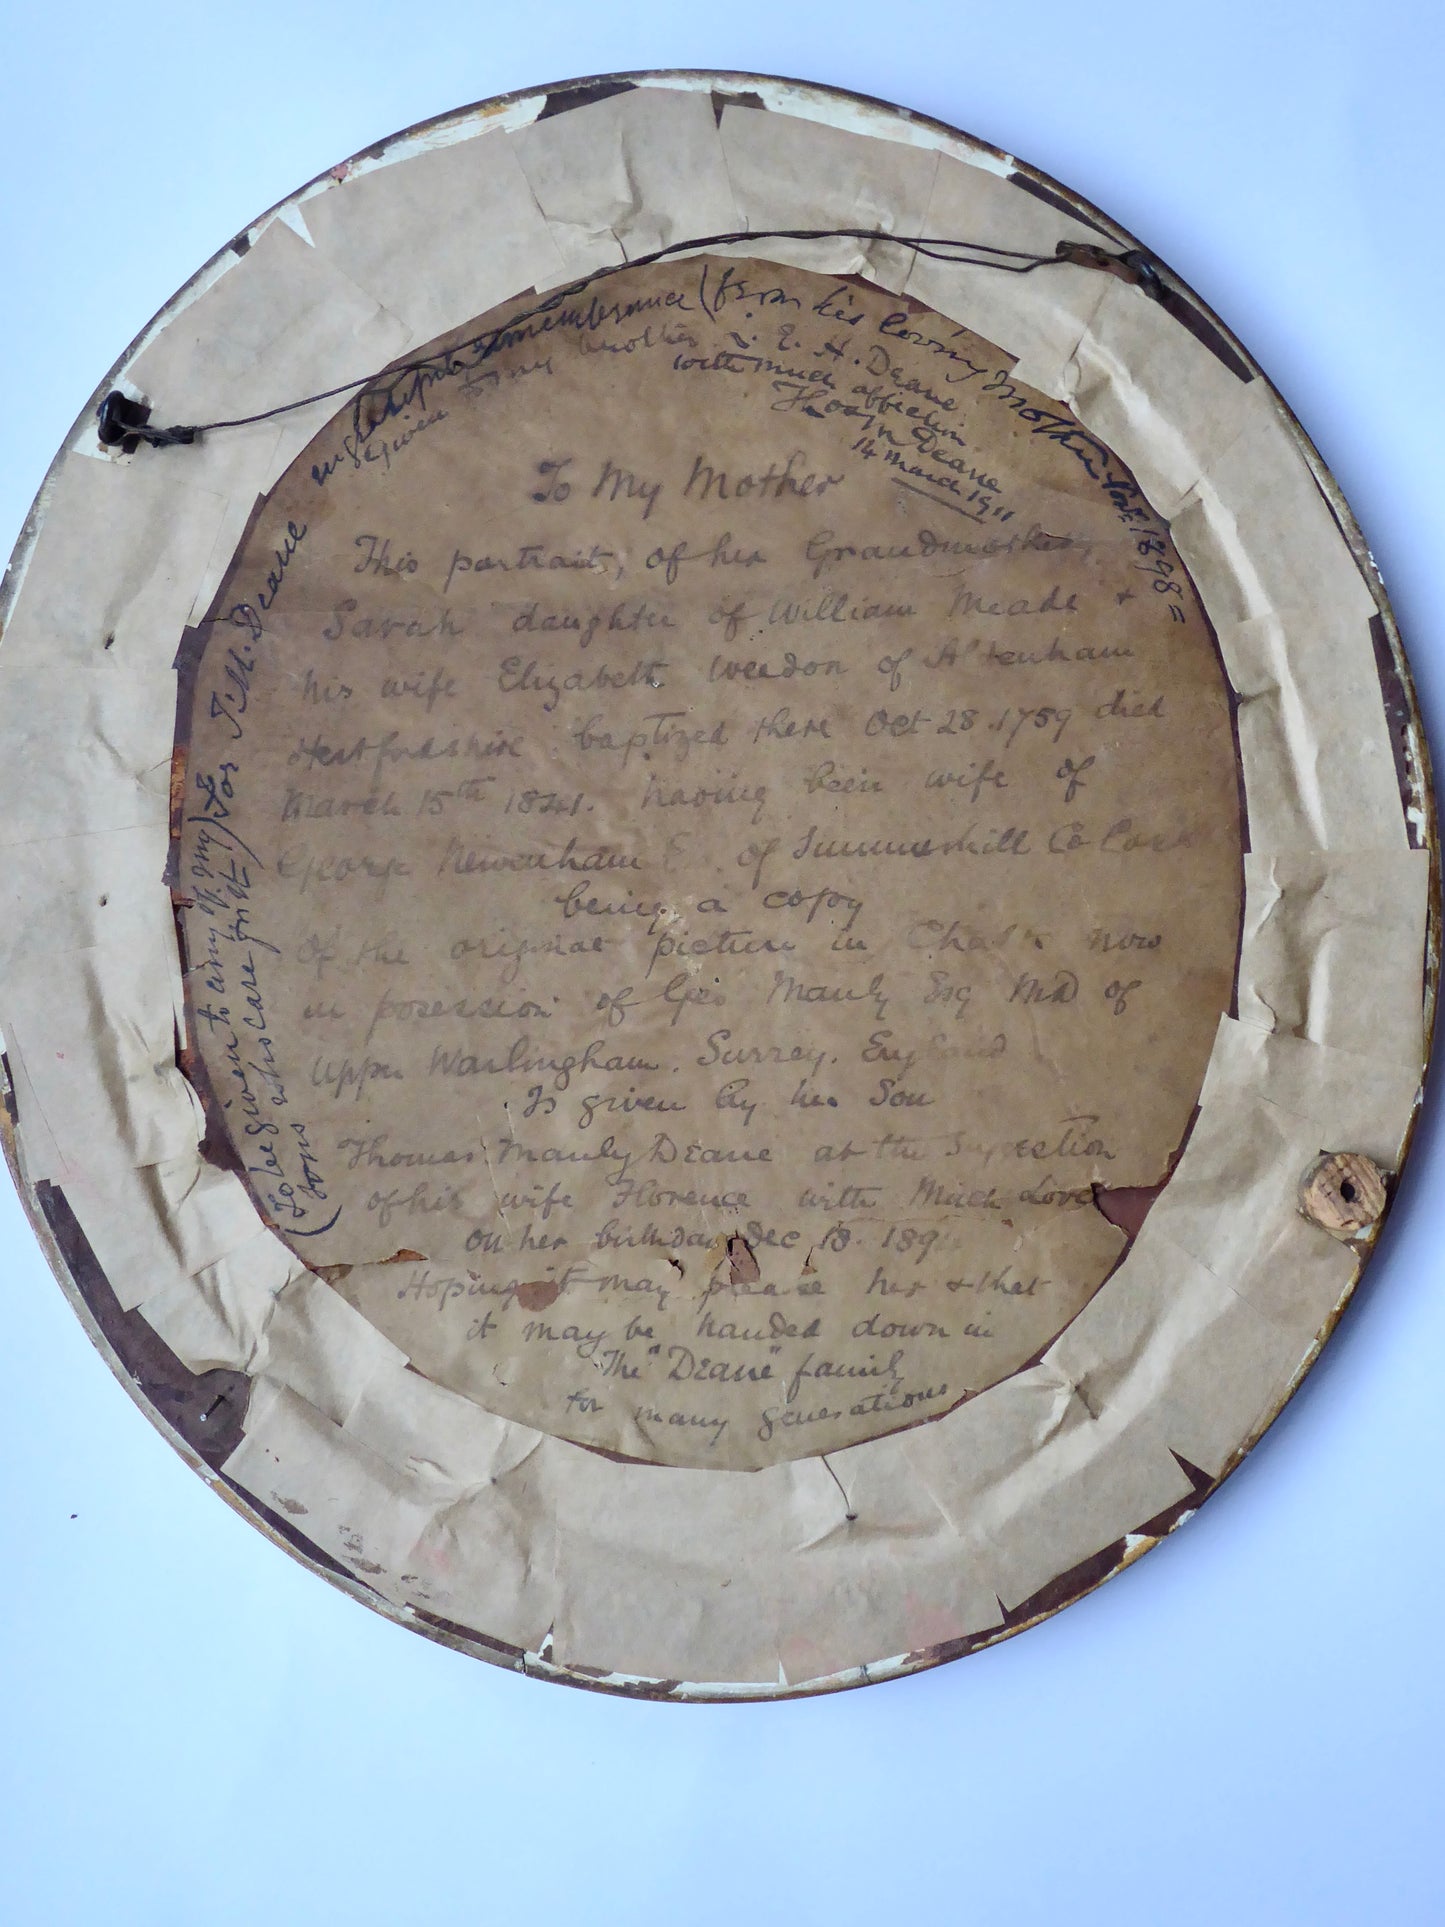 To My Mother
This portrait, of her Grandmother,
Sarah daughter of William Meade +
his wife Elizabeth Weedon of Aldenham
Hertfordshire baptized there Oct 28. 1759 died
March 15th 1841. having been wife of
George Newenham of Summerhill Co Cork
being a copy
of the original picture in Chalk now
in posession of Geo Manly Esq MD of
Upper Warlingham. Surrey. England
Is given by her Son
Thomas Manly Deane at the
of his wife Florence with Much Love
on her birthday Dec 18. 189
Hoping it may please her + that
it may be handed down in
The "Deane" family
for many generations
For T. M. Deane
remembrance (from his loving Mother 1898 =
Given to my brother E. H. Deane
with much affection
Deane
14 March 1911
(To be given to any of my
sons who care for it)